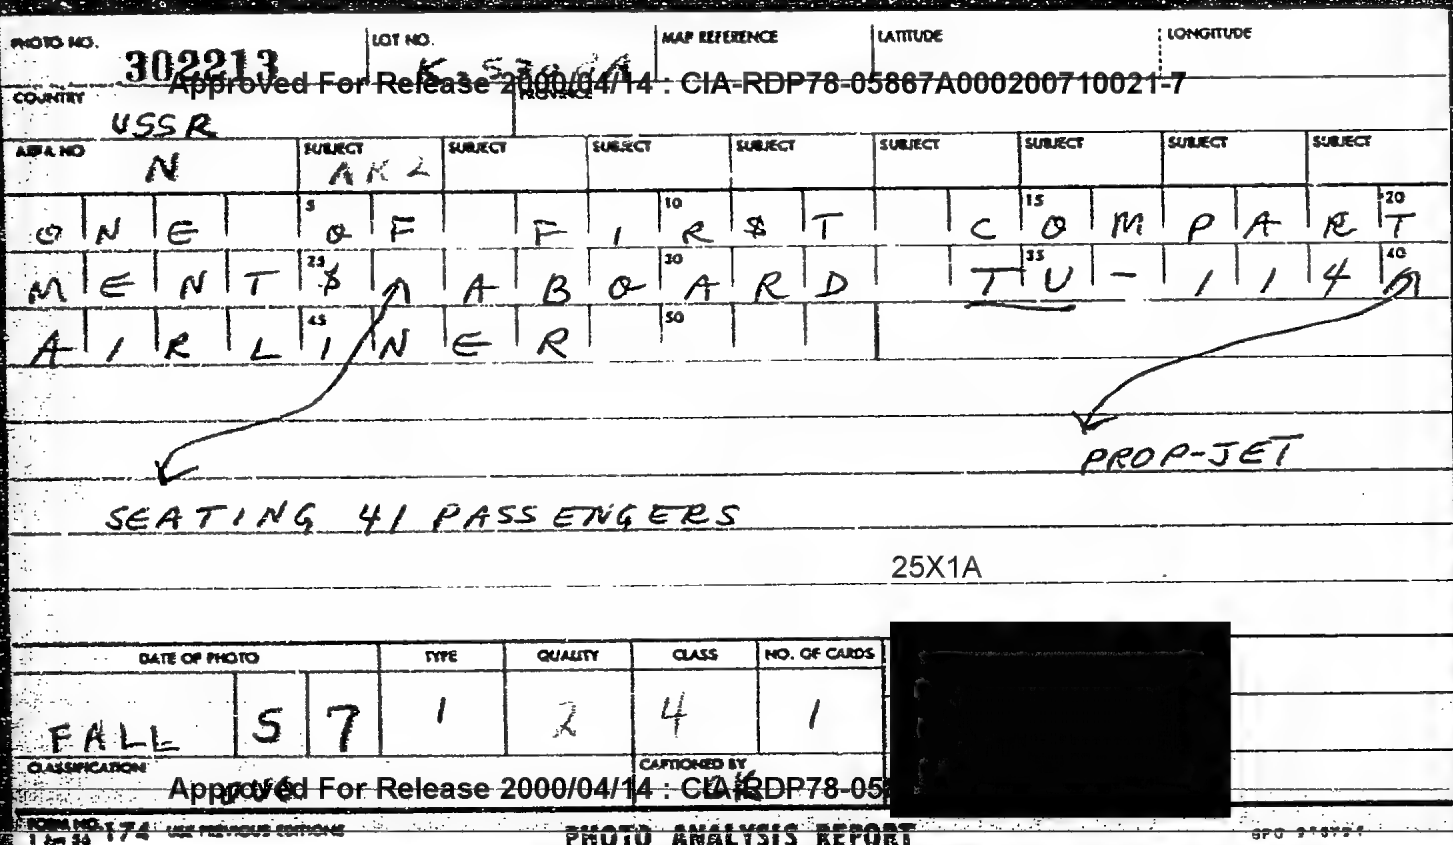 PHOTO NO. 302213 LOT NO. MAP REFERENCE LATITUDE LONGITUDE
Approved For Release 2000/04/14 : CIA-RDP78-05867A000200710021-7
COUNTRY USSR PROVINCE
AREA NO N SUBJECT AKL SUBJECT SUBJECT SUBJECT SUBJECT SUBJECT SUBJECT SUBJECT
5 10 15 20
ONE OF FIRST COMPART
25 30 35 40
MENTS ABOARD TU-114
45 50
AIRLINER
PROP-JET
SEATING 41 PASSENGERS
25X1A
DATE OF PHOTO TYPE QUALITY CLASS NO. OF CARDS
FALL 57 1 2 4 1
CLASSIFICATION CAPTIONED BY
Approved For Release 2000/04/14 : CIA-RDP78-05
FORM NO. 174 USE PREVIOUS EDITIONS PHOTO ANALYSIS REPORT